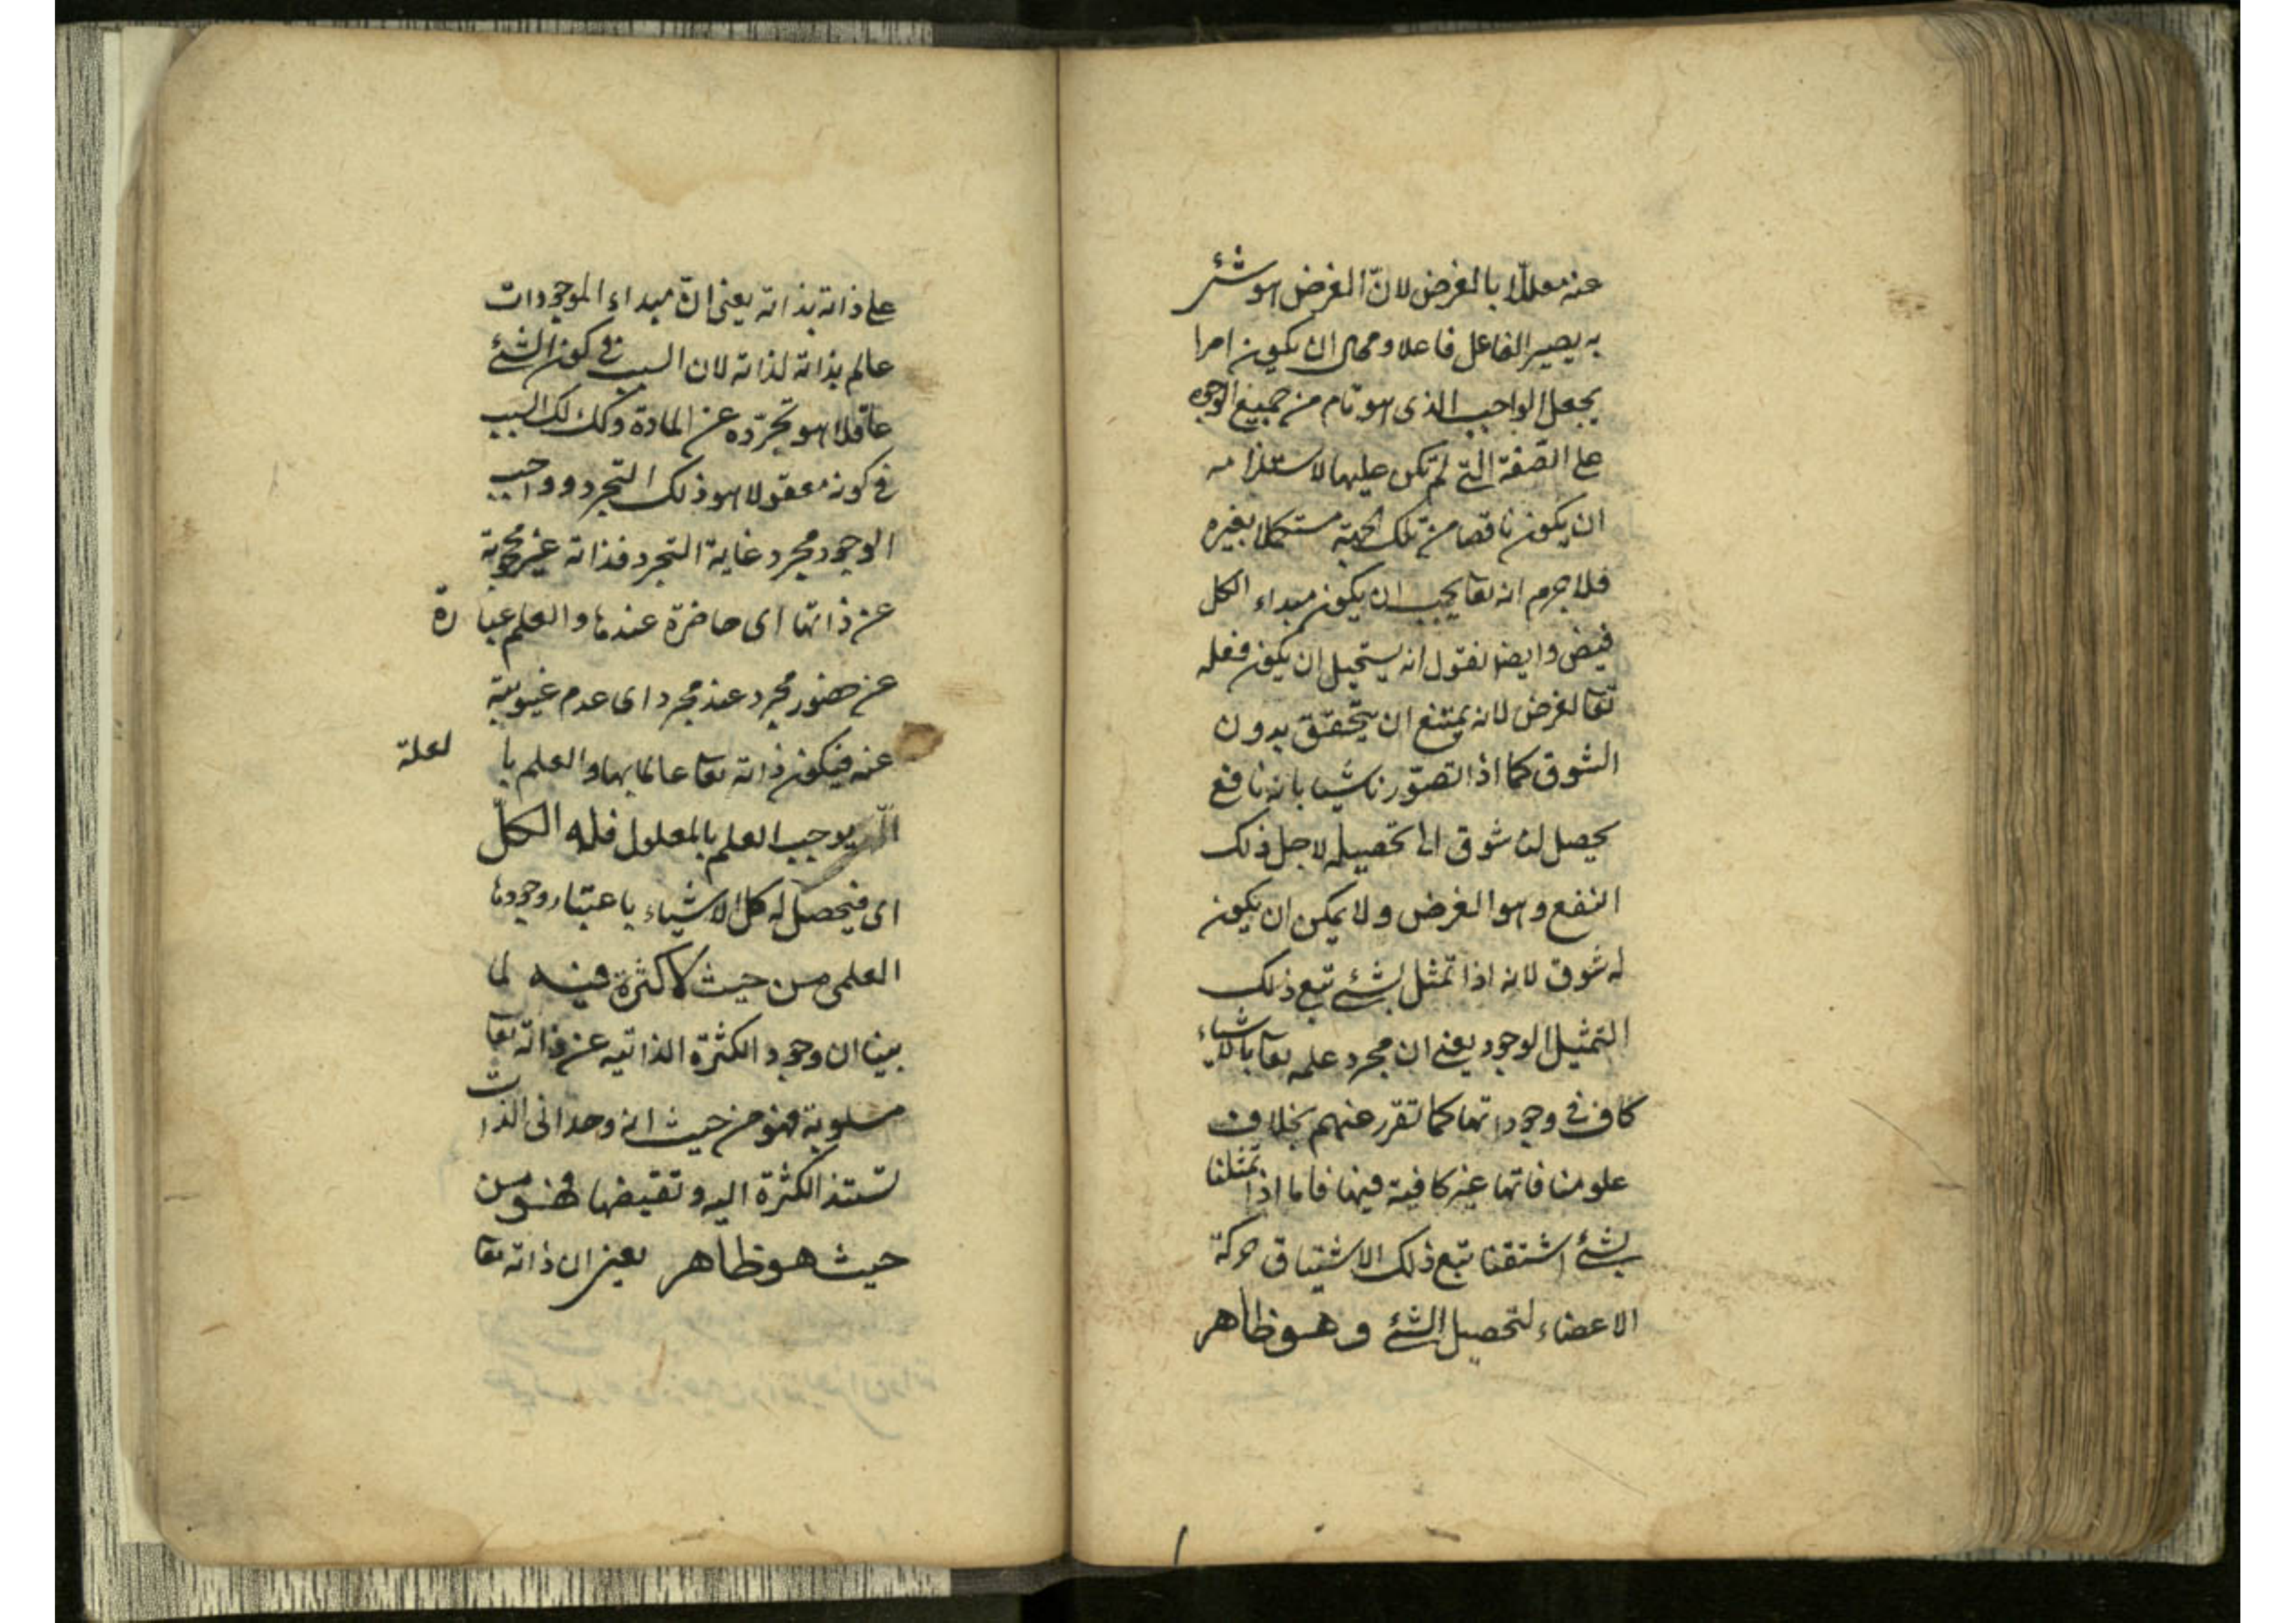 عنه معللا بالغرض لانّ الغرض هو شئ
به يصير الفاعل فاعلا ومحال ان يكون امرا
يجعل الواجب الذى هو تام من جميع الوجوه
على الصّفة التى لم تكن عليها لاستلزامه
ان يكون ناقصا من تلك الجهة مستكملا بغيره
فلاجرم انه تعا يجب ان يكون مبداء الكل
فيض وايضا نقول انه يستحيل ان يكون فعله
تعا لغرض لانه يمتنع ان يتحقق بدون
الشوق كما اذا تصوّرنا شيئا بانه نافع
يحصل لنا شوق الى تحصيله لاجل ذلك
النفع وهو الغرض ولا يمكن ان يكون
له شوق لانه اذا تمثل لشئ تبع ذلك
التمثيل الوجود يعنى ان مجرد علمه تعا بالاشياء
كاف فى وجوداتها كما تقرر عنهم بخلاف
علومنا فانها غير كافية فيها فاما اذا تمثلنا
لشئ اشتقنا تبع ذلك الاشتياق حركة
الاعضاء لتحصيل الشئ وهو ظاهر
على ذاته بذاته يعنى انّ مبداء الموجودات
عالم بذاته لذاته لان السبب فى كون الشئ
عاقلا هو تجرّده عن المادة وكذلك السبب
فى كونه معقولا هو ذلك التجرد وواجب
الوجود مجرد غاية التجرد فذاته غير محجوبة
عن ذاتها اى حاضرة عندها والعلم عبارة
عن حضور مجرد عند مجرد اى عدم غيبوبية
عنه فيكون ذاته تعا عالما بها والعلم بالعلة
يوجب العلم بالمعلول فله الكلّ
اى فيحصل له كل الاشياء باعتبار وجودها
العلمى من حيث لا كثرة فيه لما
بينا ان وجود الكثرة الذاتيه عن ذاته تعا
مسلوبة فهو من حيث انه وحدانى الذات
تستند الكثرة اليه وتفيضها فهو من
حيث هو ظاهر يعنى ان ذاته تعا